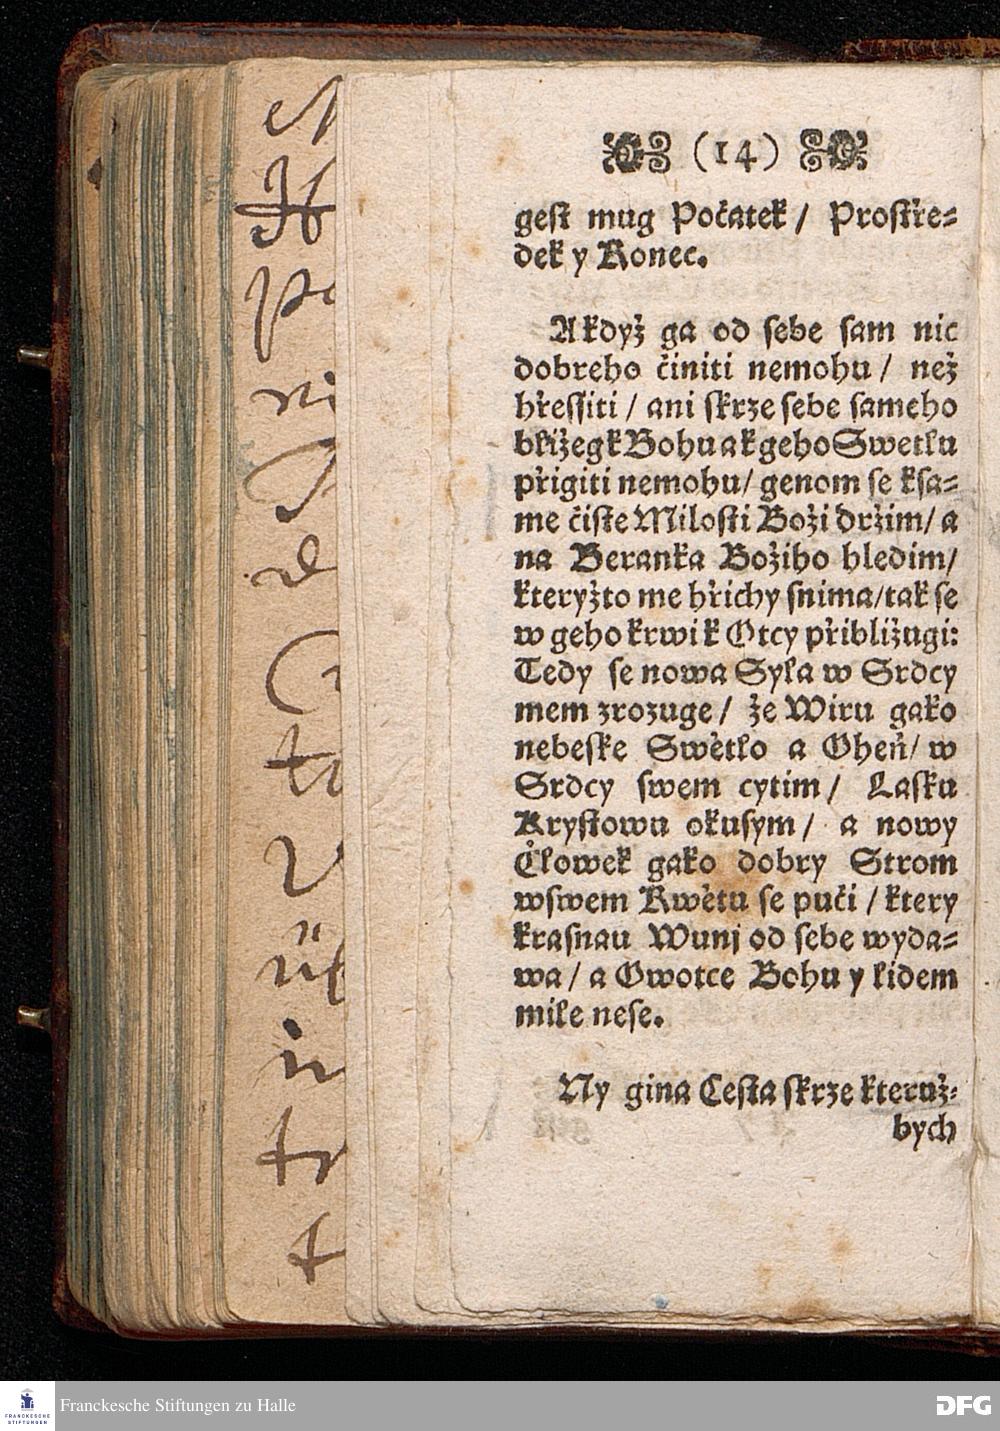 (14)
gest mug Počatek / Prostře=
dek y Konec.
A kdyź ga od sebe sam nic
dobreho činiti nemohu / neź
hřessiti / ani skrze sebe sameho
bliźeg k Bohu a k geho Swetlu
přigiti nemohu / genom se k sa=
me čiste Milosti Boźi drźim / a
na Beranka Boźiho hledim /
kteryźto me hřichy snima / tak se
w geho krwi k Otcy přibliźugi:
Tedy se nowa Syla w Srdcy
mem zrozuge / źe Wiru gako
nebeske Swètlo a Oheň / w
Srdcy swem cytim / Lasku
Krystowu okusym / a nowy
Člowek gako dobry Strom
wswem Kwètu se puči / ktery
krasnau Wunj od sebe wyda=
wa / a Owotce Bohu y lidem
mile nese.
Ny gina Cesta skrze kteruź=
bych
Franckesche Stiftungen zu Halle
FRANCKESCHE
STIFTUNGEN
DFG